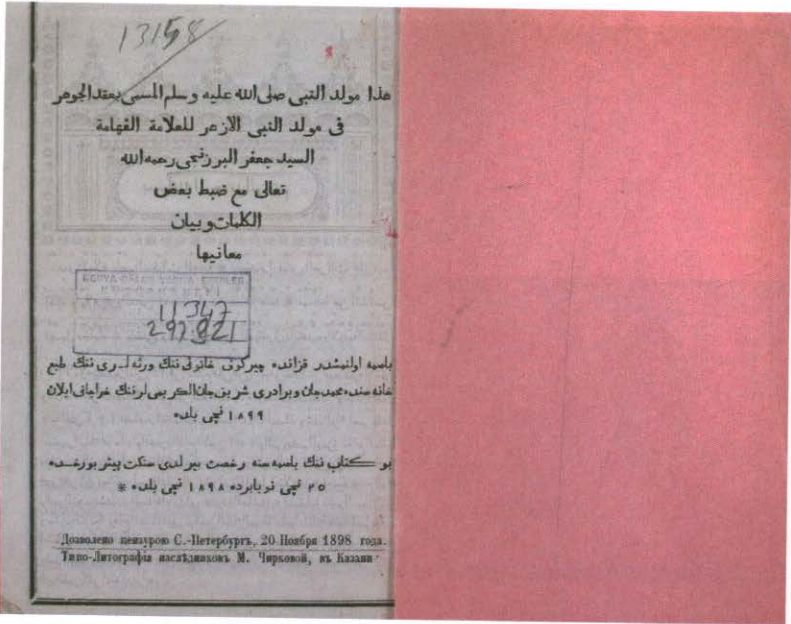 13158
هذا مولد النبى صلى الله عليه وسلم المسمى بعقد الجوهر
فى مولد النبى الازهر للعلامة الفهامة
السيد جعفر البرزنجى رحمه الله
تعالى مع ضبط بعض
الكلمات وبيان
معانيها
11347
297.821
باصمه اولنمشدر قزانده چيركوڧ خاتوننڭ ورثه لرى ننڭ طبع
خانه سنده محمدجان وبرادرى شريف جان الكريمى لرننڭ خراجاتى ايلان
١٨٩٩ نچى يلده
بو كتاب ننڭ باصمه سنه رخصت بيرلدى سنكت پيتر بورغده
٢٥ نچى نويابرده ١٨٩٨ نچى يلده *
Дозволено цензурою С.-Петербургъ, 20 Ноября 1898 года.
Типо-Литографія наслѣдниковъ М. Чирковой, въ Казани